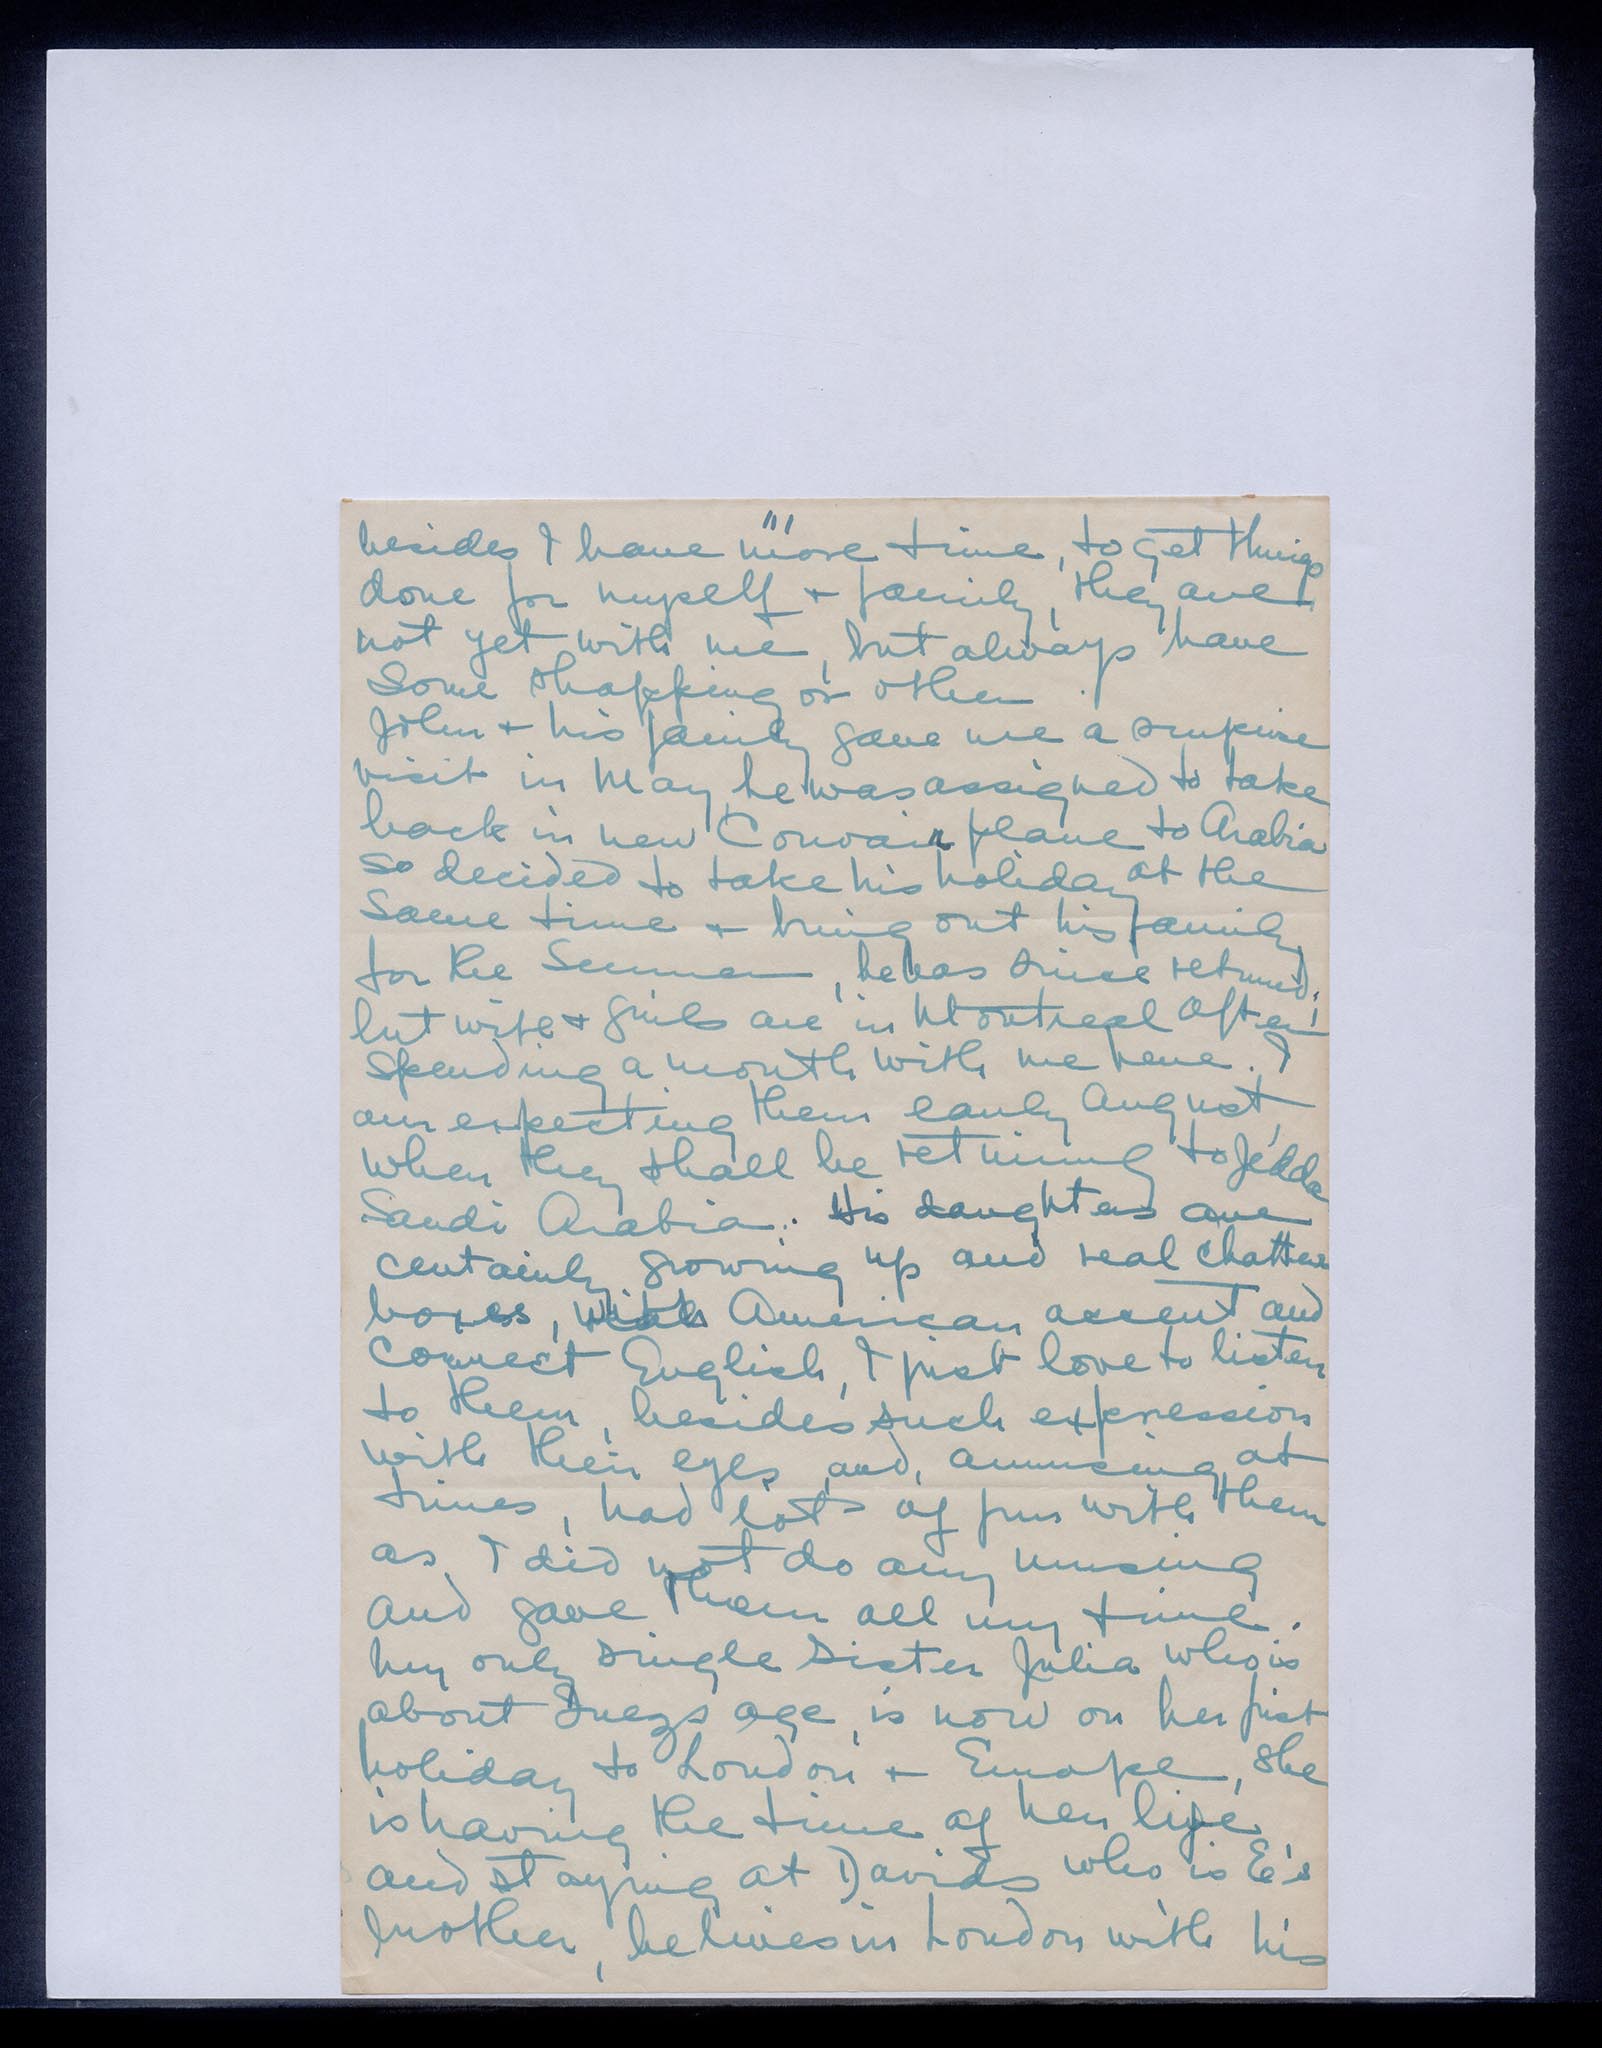 "'
besides I have more time, to get things
done for myself + family, they are
not yet with me, but always have
some shopping or other.
John + his family gave me a surprise
visit in May, he was assigned to take
back in new Convair plane to Arabia
so decided to take his holiday at the
same time + bring out his family
for the Summer, he has since returned,
but wife + girls are in Montreal after
spending a month with me here. I
am expecting them early August,
when they shall be returning to Jedda
Saudi Arabia. His daughters are
certainly growing up and real chatter
boxes, with American accent and
correct English, I just love to listen
to them, besides such expression
with their eyes, and, amusing at
times, had lots of fun with them
as I did not do any nursing
and gave them all my time.
My only single sister Julia who is
about Inezs age, is now on her first
holiday to London + Europe, she
is having the time of her life
and staying at Davids who is E's
brother, he lives in London with his